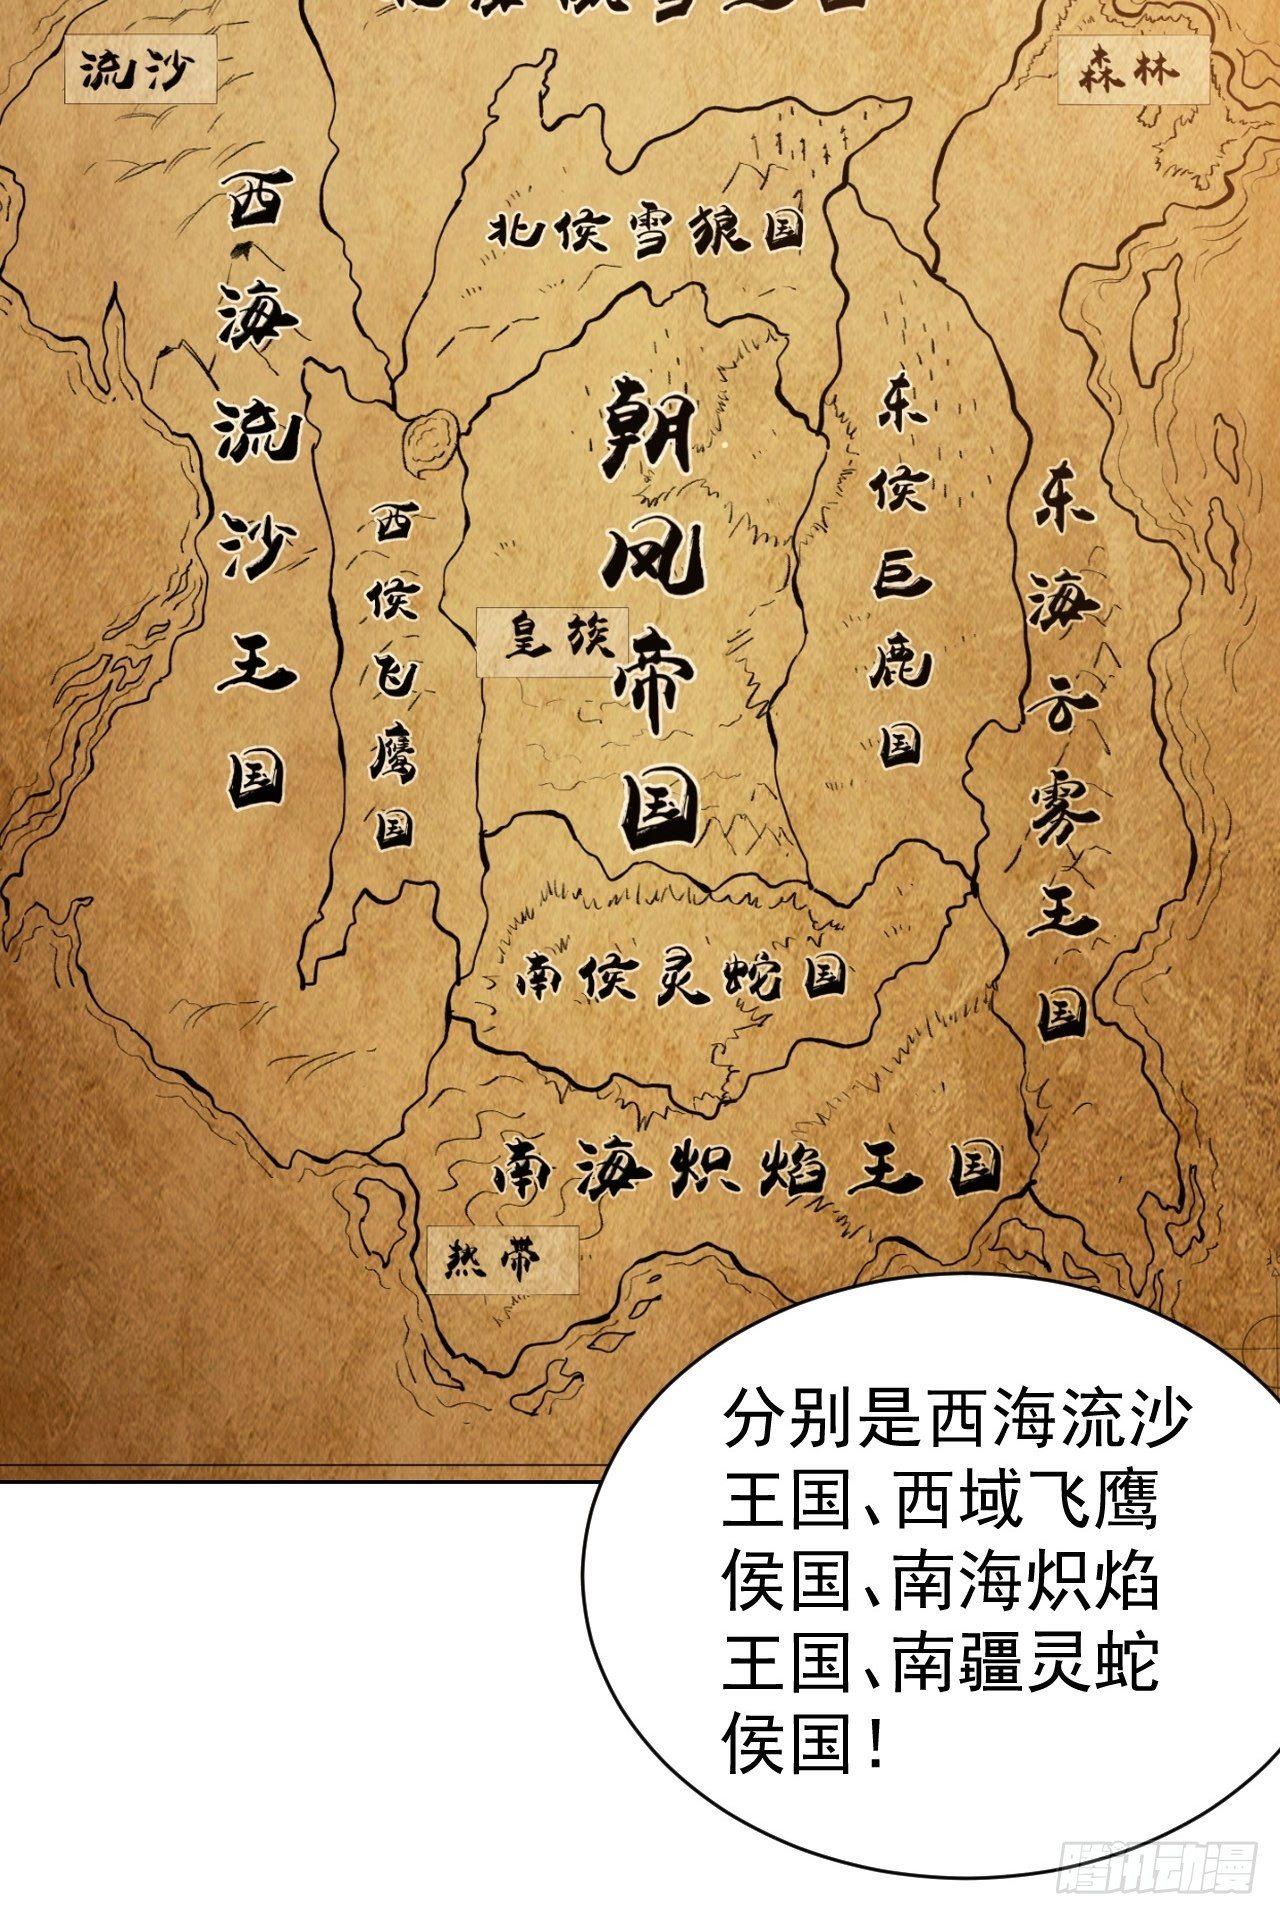 流沙
森林
北侯雪狼国
西海流沙王国
朝凤帝国
东侯巨鹿国
西侯飞鹰国
东海云雾王国
皇族
南侯灵蛇国
南海炽焰王国
热带
分别是西海流沙
王国、西域飞鹰
侯国、南海炽焰
王国、南疆灵蛇
侯国！
腾讯动漫